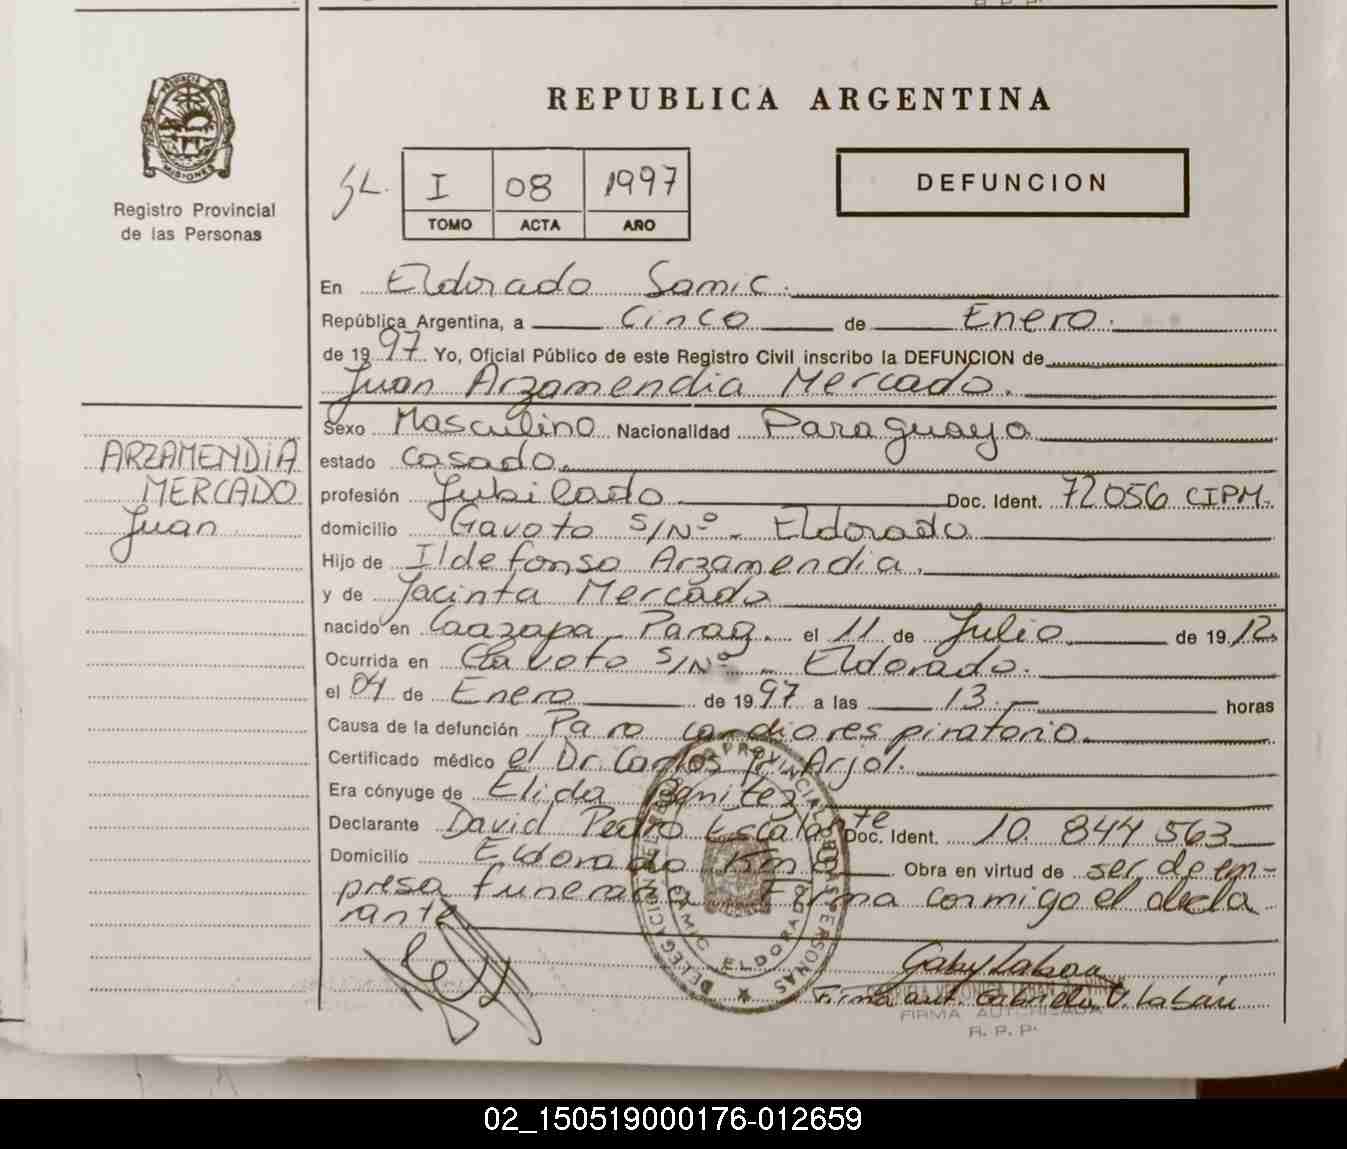 REPUBLICA ARGENTINA
MISIONES
Registro Provincial
de las Personas
SL.
I 08 1997
TOMO ACTA AÑO
DEFUNCION
En Eldorado Samic.
República Argentina, a Cinco de Enero.
de 1997 Yo, Oficial Público de este Registro Civil inscribo la DEFUNCION de
Juan Arzamendia Mercado.
Sexo Masculino Nacionalidad Paraguaya
estado casado.
profesión Jubilado Doc. Ident. 72056 CIPM.
domicilio Gavoto S/Nº - Eldorado
Hijo de Ildefonso Arzamendia.
y de Jacinta Mercado
nacido en Caazapa, Parag. el 11 de Julio de 1912.
Ocurrida en Gavoto S/Nº - Eldorado.
el 04 de Enero de 1997 a las 13.- horas
Causa de la defunción Paro cardiorespiratorio.
Certificado médico el Dr. Carlos Arjol.
Era cónyuge de Elida Benitez.
Declarante David Pedro Escalante Doc. Ident. 10.844.563
Domicilio Eldorado Km Obra en virtud de ser de em-
presa funeraria Firma conmigo el decla
rante
ARZAMENDIA
MERCADO
Juan
DELEGACION PROVINCIAL PERSONAS
SAMIC ELDORADO
Gaby Laban
Firma aut. Gabriela V. Labán
FIRMA AUTORIZADA
R. P. P.
02_150519000176-012659